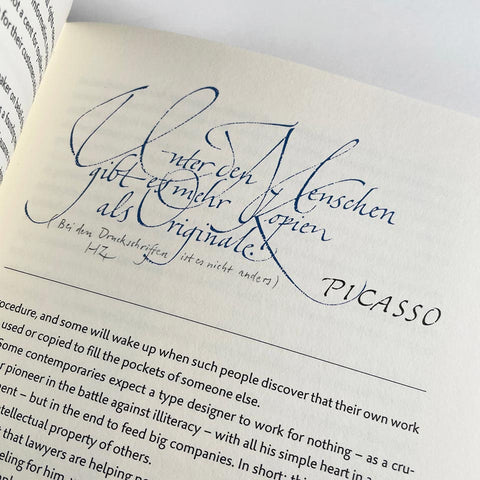 not a cent
for their
Unter den Menschen
gibt es mehr Kopien
als Originale!
(Bei den Druckschriften ist es nicht anders)
HZ
PICASSO
rocedure, and some will wake up when such people discover that their own work
used or copied to fill the pockets of someone else.
Some contemporaries expect a type designer to work for nothing – as a cru-
r pioneer in the battle against illiteracy – with all his simple heart in a
ent – but in the end to feed big companies. In short:
tellectual property of others.
t that lawyers are helping
eling for him,